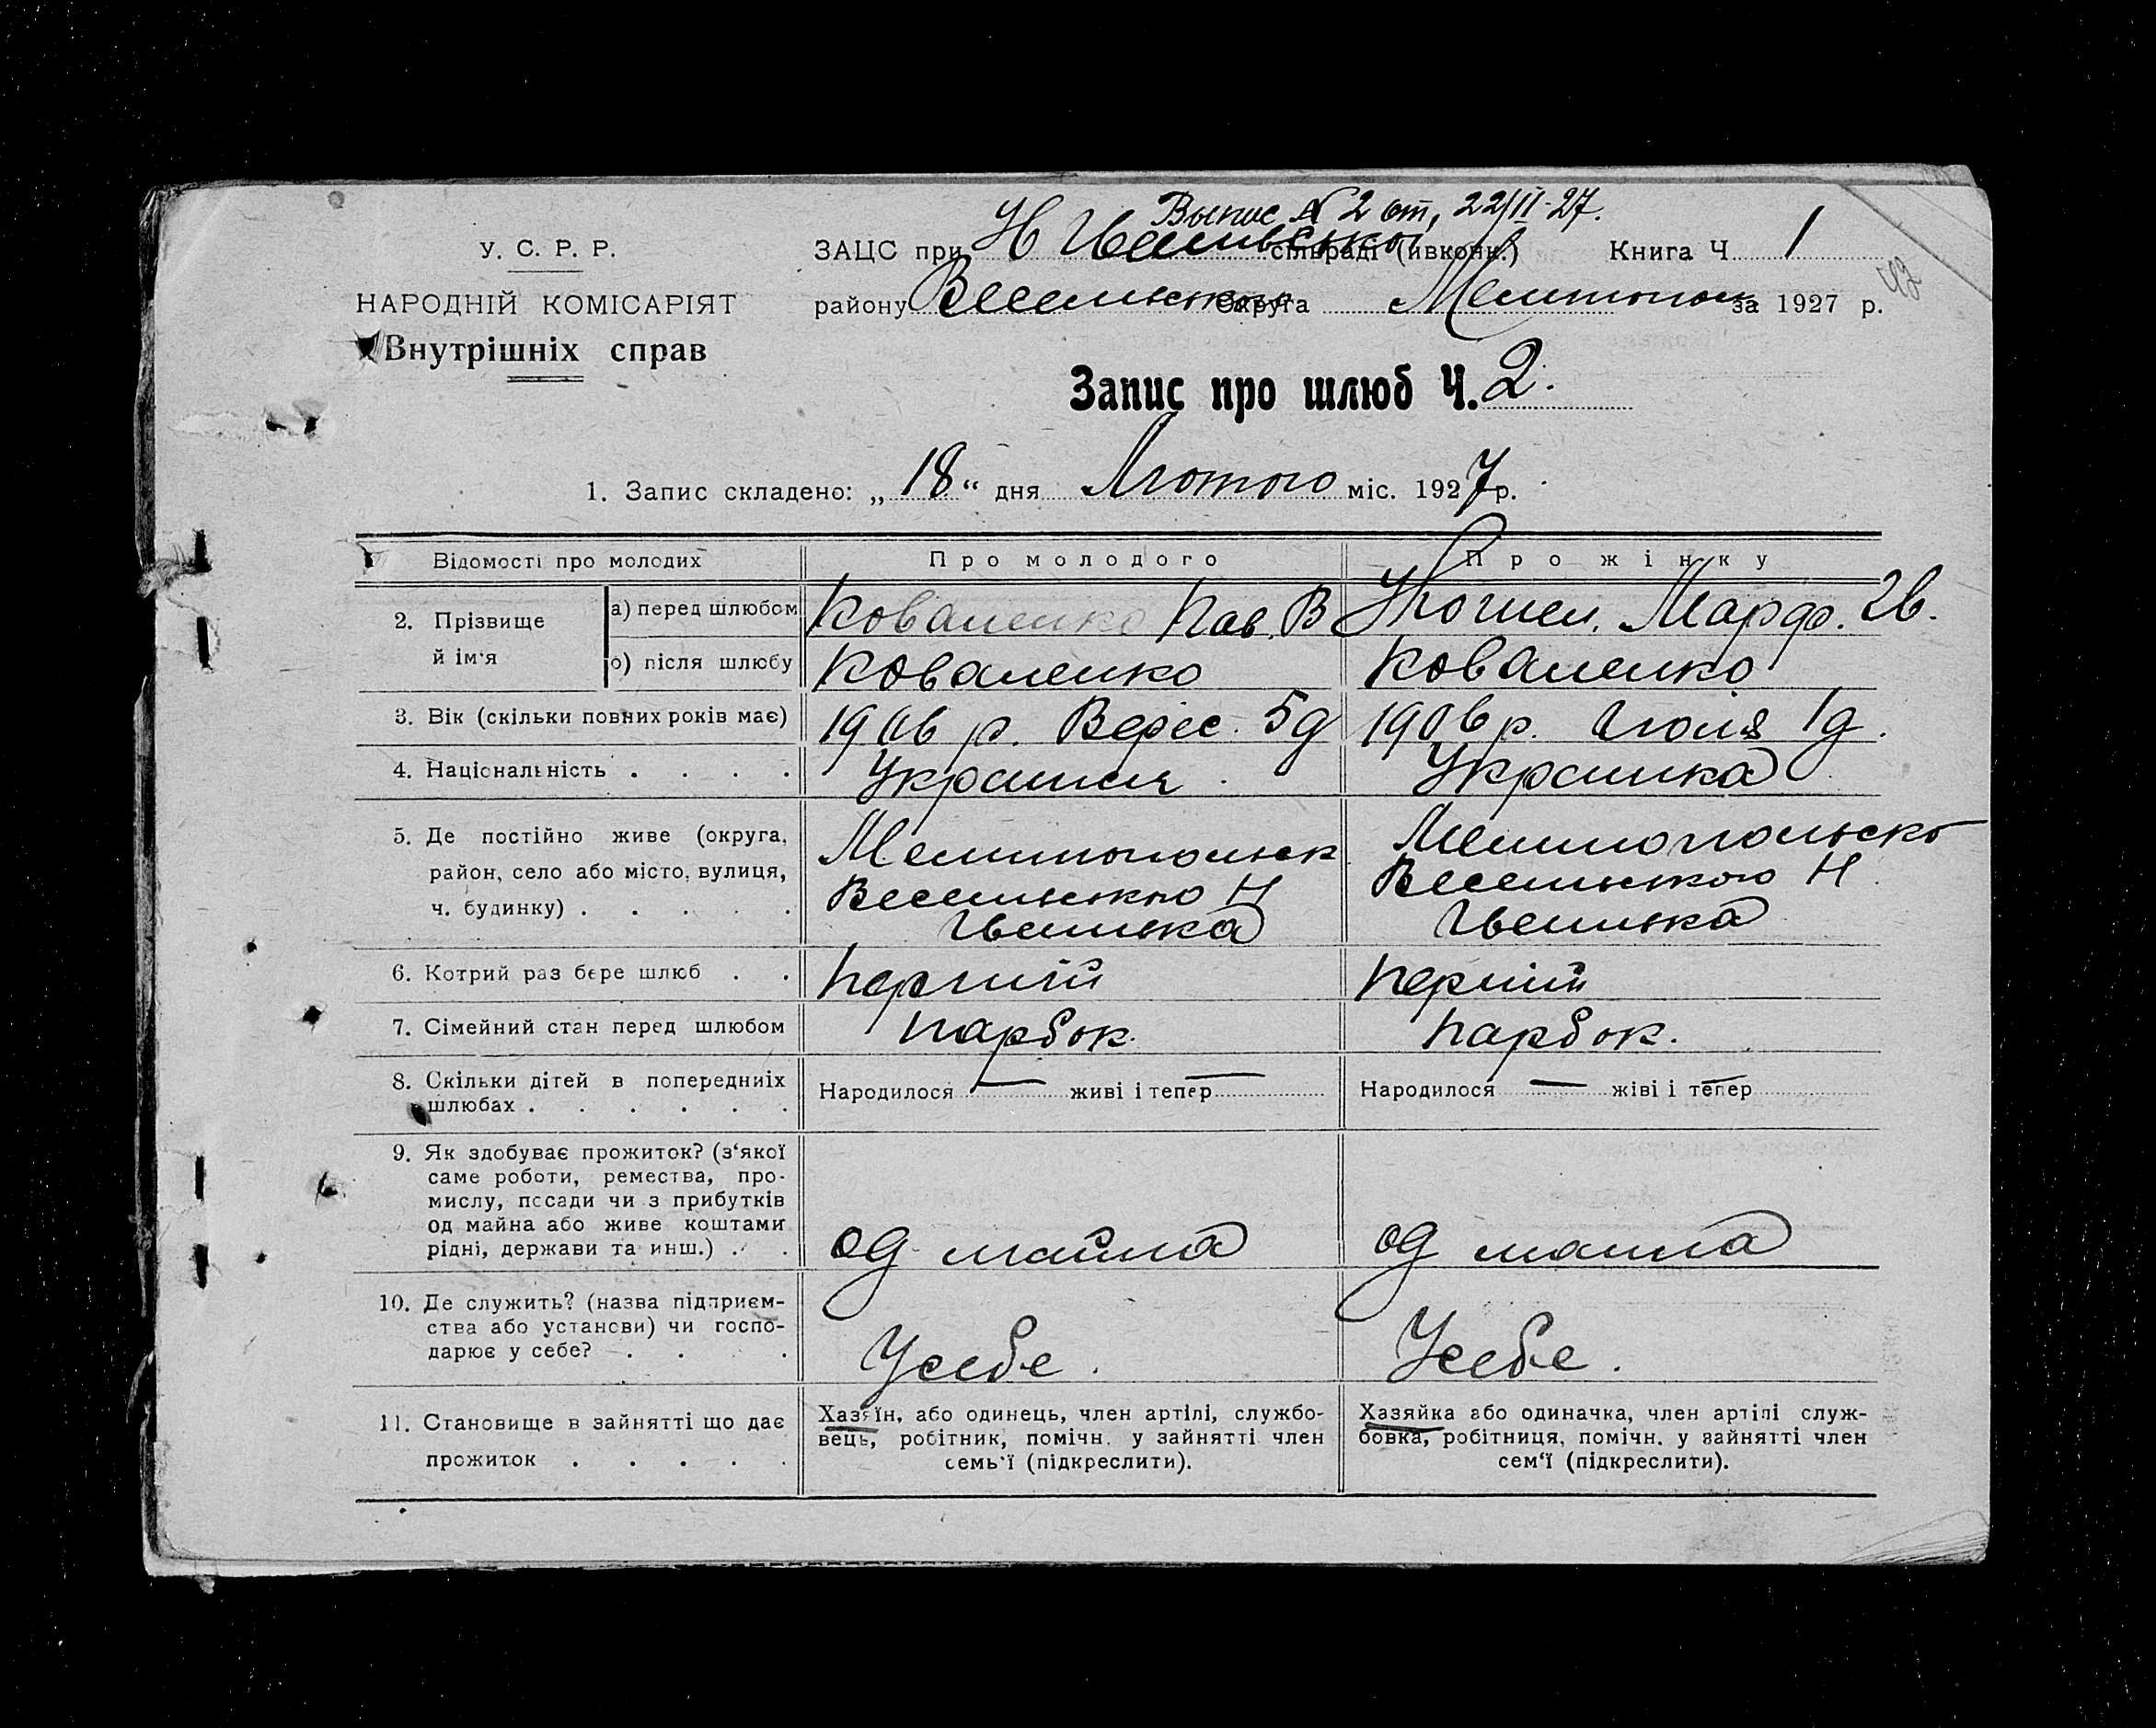 Выпис № 2 от, 22/II-27.
У. С. Р. Р.
ЗАЦС при Н сільраді (ивконк.) Книга Ч 1
НАРОДНІЙ КОМІСАРІЯТ
району Веселиського Округа Мелитополь за 1927 р.
Внутрішніх справ
Запис про шлюб Ч. 2.
1. Запис складено: „18“ дня Лютого міс. 1927 р.
Відомості про молодих
Про молодого
Про жінку
2. Прізвище й ім'я
а) перед шлюбом
Коваленко Пав. В
Марф. Ив.
б) після шлюбу
Коваленко
Коваленко
3. Вік (скільки повних років має)
1906 р. Верес. 5д
1906 р. Июля 1д.
4. Національність . . . .
Украинець
Украинка
5. Де постійно живе (округа,
район, село або місто, вулиця,
ч. будинку) . . . . .
Мелитопольськ
Веселиського Н
Мелитопольско
Веселиського Н.
6. Котрий раз бере шлюб . .
перший
перший
7. Сімейний стан перед шлюбом
парбок.
парбок.
8. Скільки дітей в попередниіх
шлюбах . . . . . .
Народилося — живі і тепер —
Народилося — жіві і тепер —
9. Як здобуває прожиток? (з‘якої
саме роботи, ремества, про-
мислу, посади чи з прибутків
од майна або живе коштами
рідні, держави та инш.) . .
од майна
од маина
10. Де служить? (назва підприєм-
ства або установи) чи госпо-
дарює у себе? . . .
Усебе.
Усебе.
11. Становище в зайнятті що дає
прожиток . . . . .
Хазяїн, або одинець, член артілі, службо-
вець, робітник, помічн. у зайнятті член
семь‘ї (підкреслити).
Хазяйка або одиначка, член артілі служ-
бовка, робітниця, помічн. у зайнятті член
сем‘ї (підкреслити).